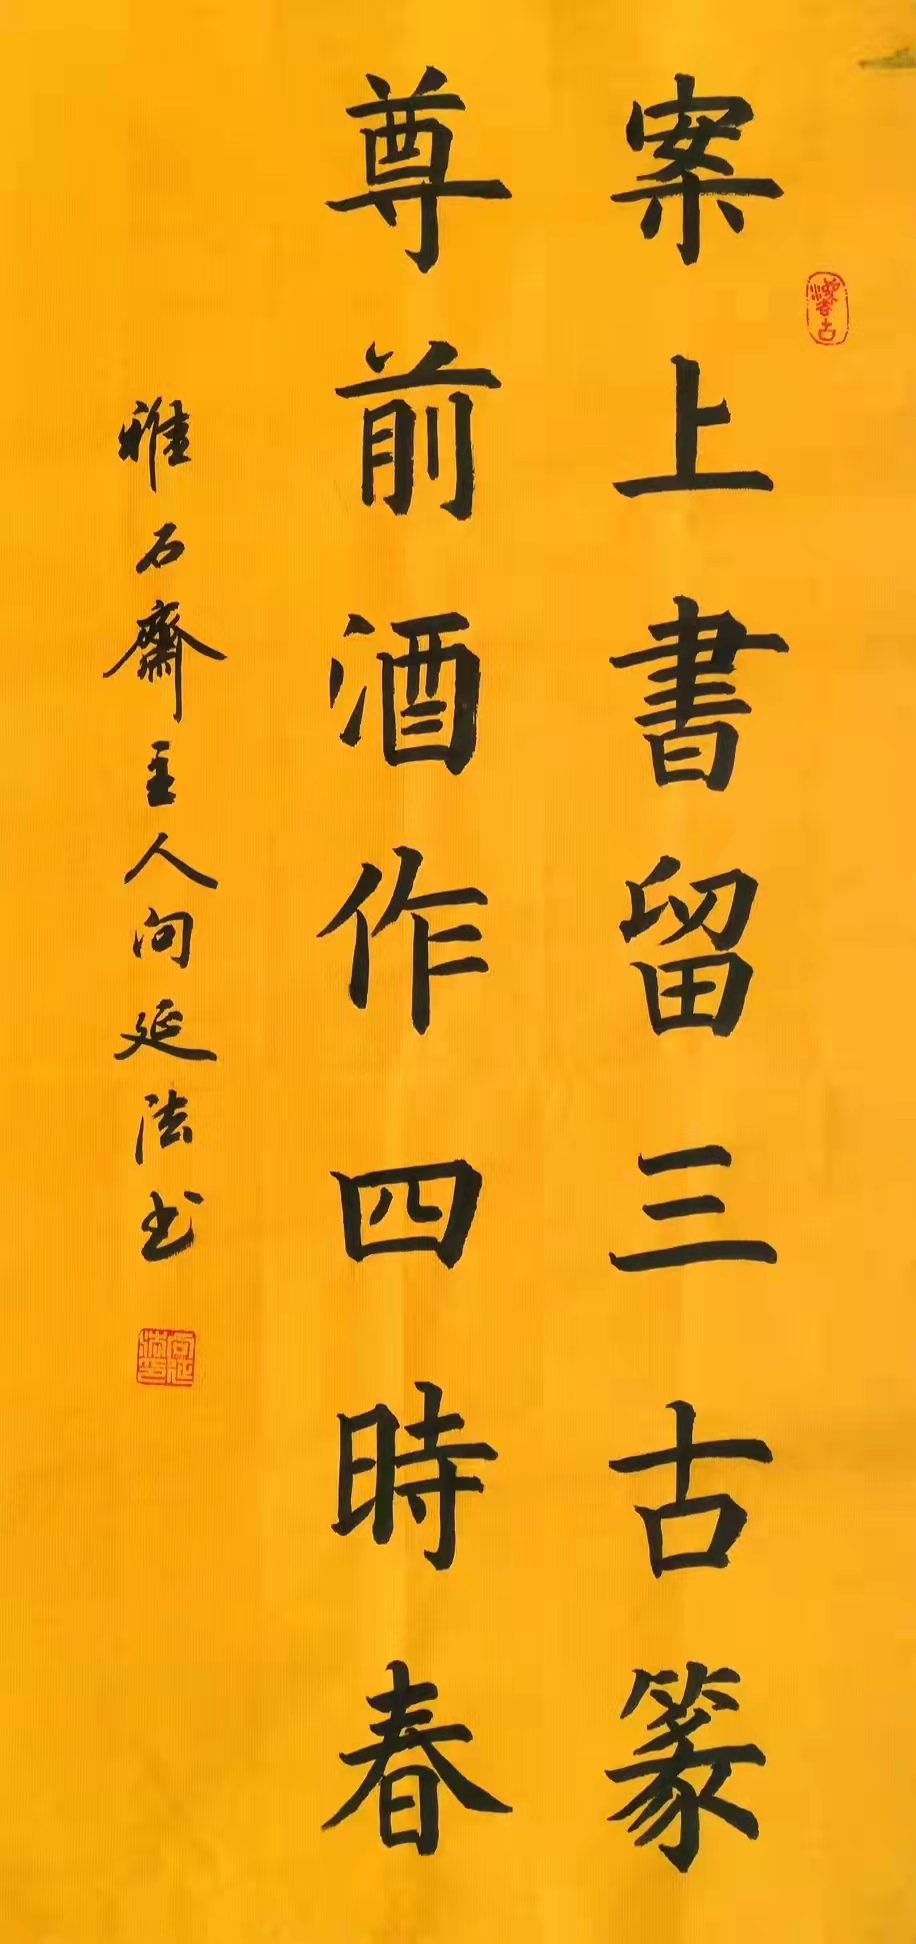 案上書留三古篆
尊前酒作四時春
雅石齋主人向延法书